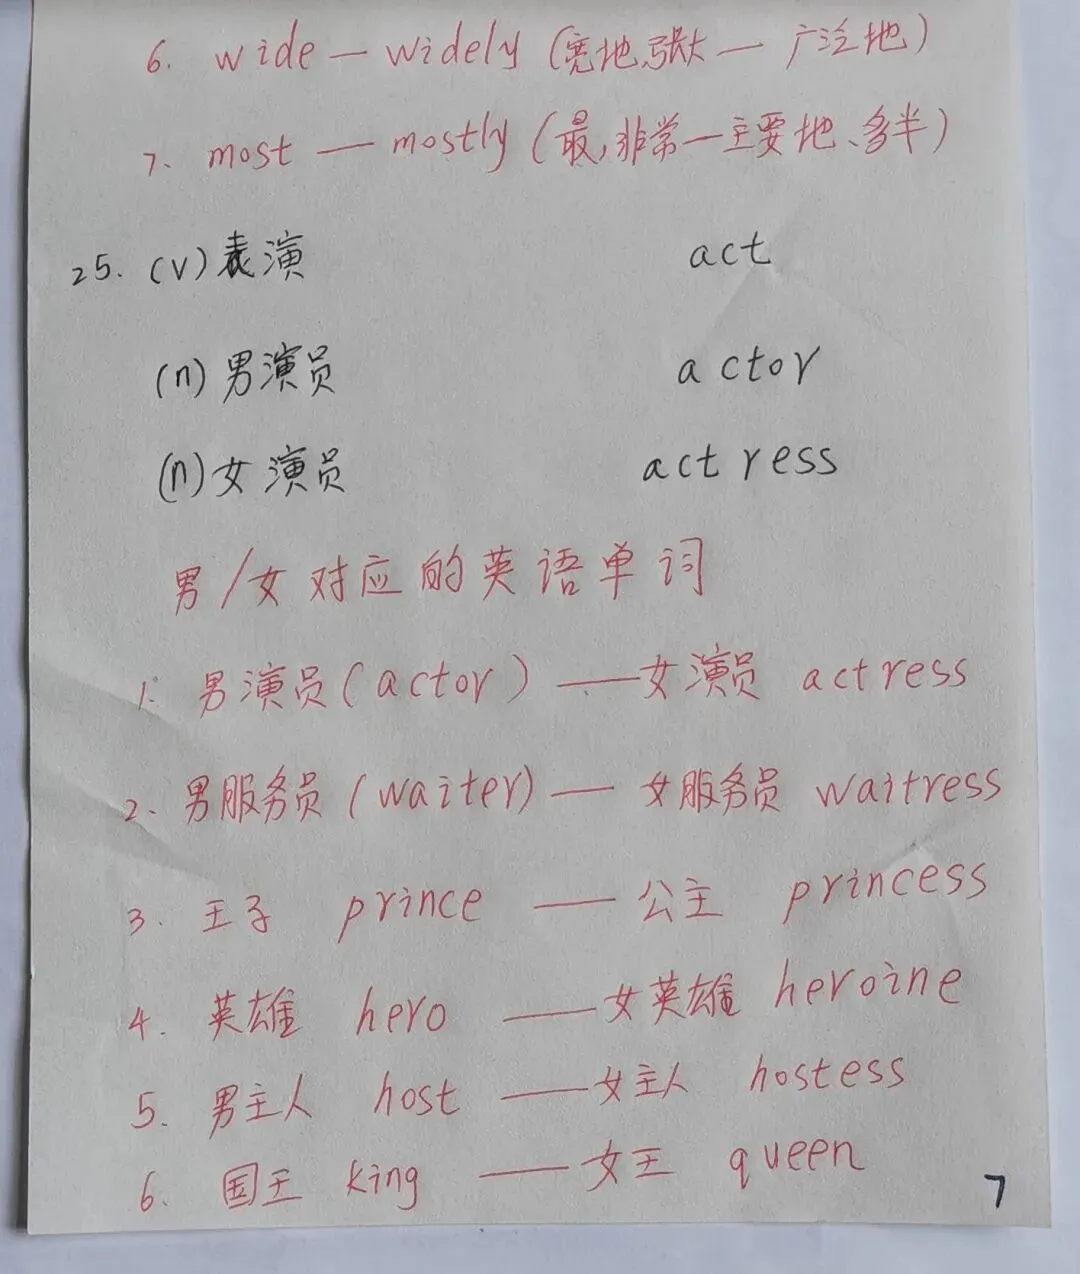 6. wide — widely (宽地,张大 — 广泛地)
7. most — mostly (最,非常 — 主要地、多半)
25. (v) 表演 act
(n) 男演员 actor
(n) 女演员 actress
男/女对应的英语单词
1. 男演员(actor) —— 女演员 actress
2. 男服务员(waiter) — 女服务员 waitress
3. 王子 prince — 公主 princess
4. 英雄 hero —— 女英雄 heroine
5. 男主人 host —— 女主人 hostess
6. 国王 king —— 女王 queen
7